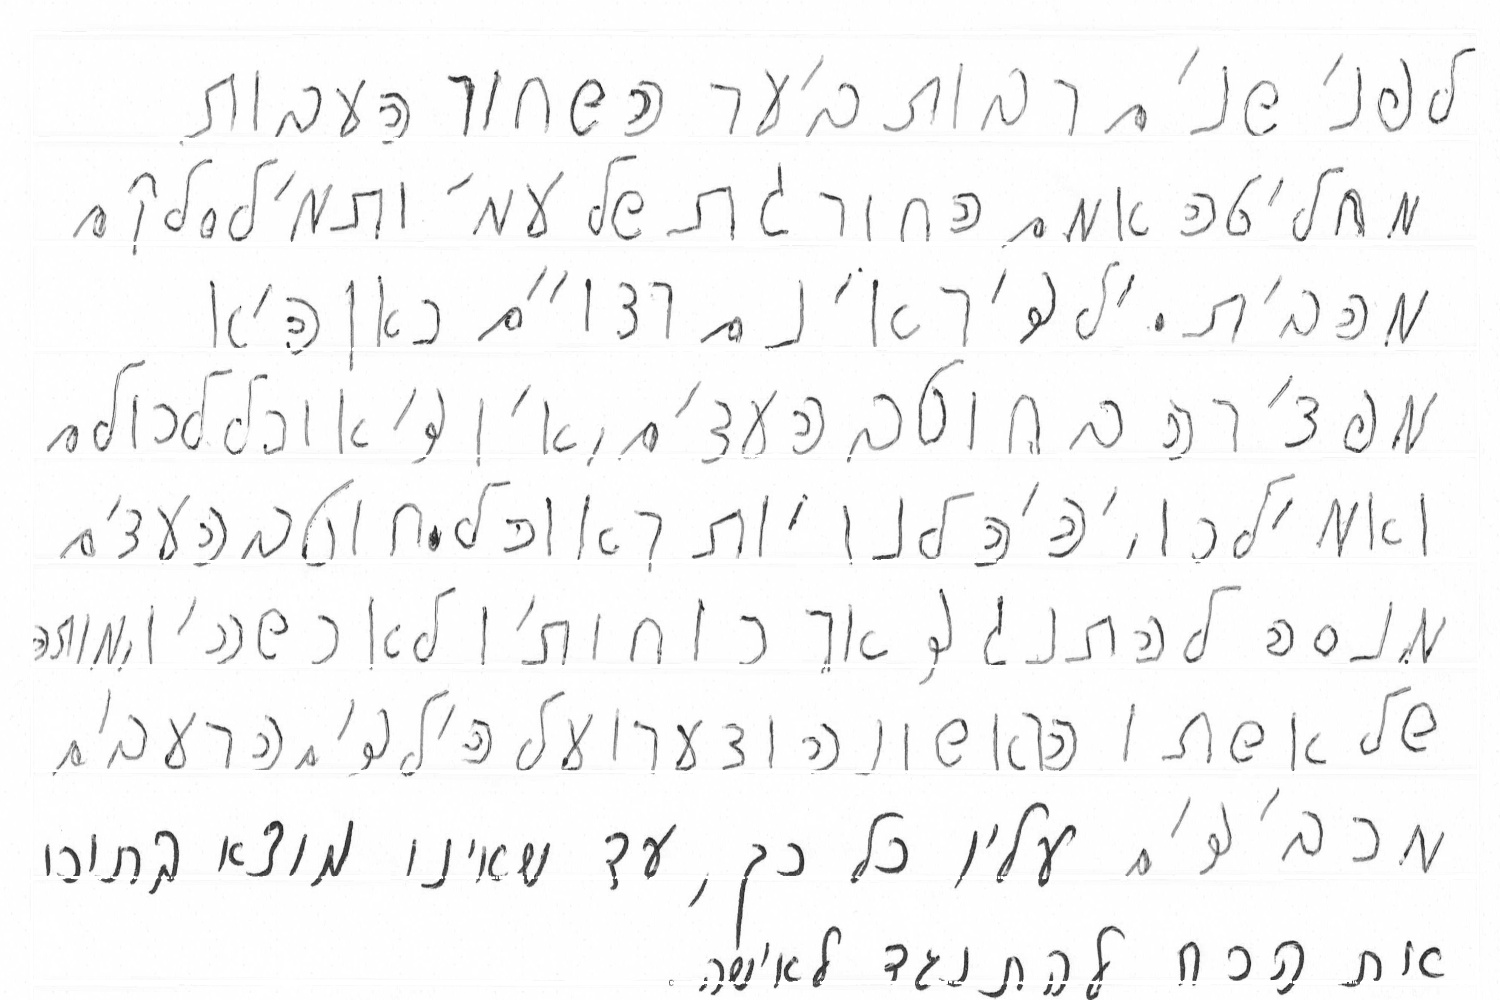 לפני שנים רבות ביער השחור העבות
מחליטה אמם החורגת של עמי ותמי לסלקם
מהבית. ילדי ראינם רצויים כאן היא
מפצירה בחוטב העצים, אין די אוכל לכולם
ואם ילכו, יהיה לנו יותר אוכל. חוטב העצים
מנסה להתנגד אך כוחותיו לא כשהיו, מותה
של אשתו הראשונה וצערו על הילדים הרעבים
מכבידים עליו כל כך, עד שאינו מוצא בתוכו
את הכח להתנגד לאישה.